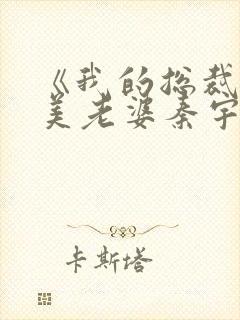 《我的总裁
美老婆秦宇
卡斯塔